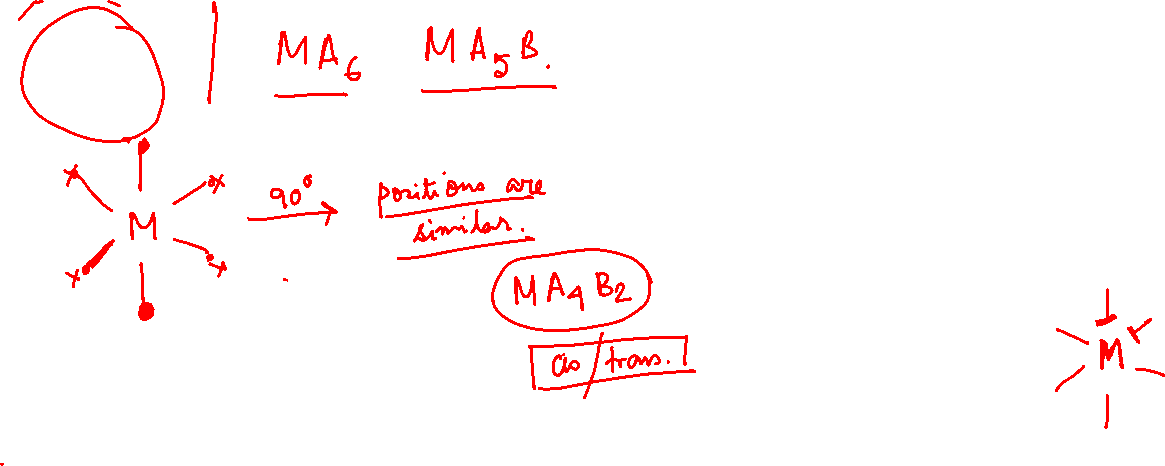 MA6 MA5B.
M 90° positions are
similar.
MA4B2
cis/trans.
M